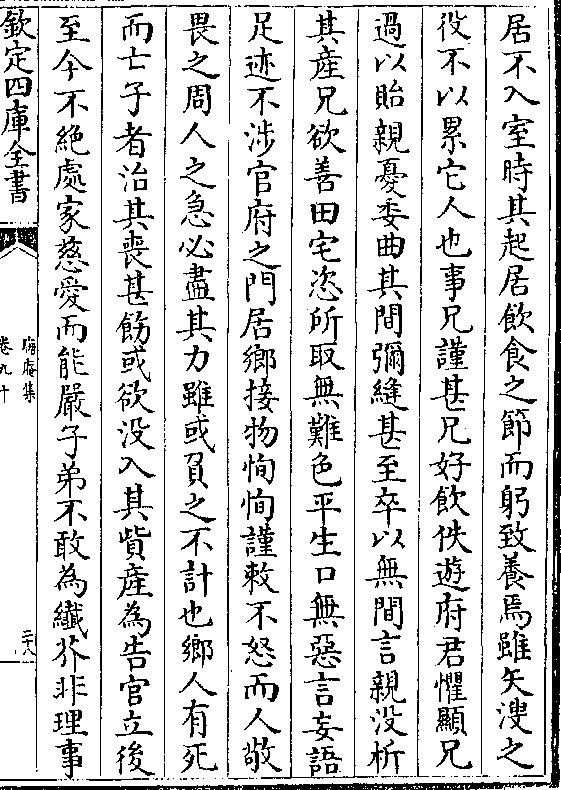 居不入室時其起居飲食之節而躬致養焉雖矢溲之
役不以累它人也事兄謹甚兄好飲佚遊府君懼顯兄
過以貽親憂委曲其間彌縫甚至卒以無間言親没析
其產兄欲善田宅恣所取無難色平生口無惡言妄語
足迹不涉官府之門居鄉接物恂恂謹敕不怒而人敬
畏之周人之急必盡其力雖或負之不計也鄉人有死
而亡子者治其喪甚飭或欲没入其貲產為告官立後
至今不絕處家慈愛而能嚴子弟不敢為纖芥非理事
欽定四庫全書
晦庵集
卷九十
二十八